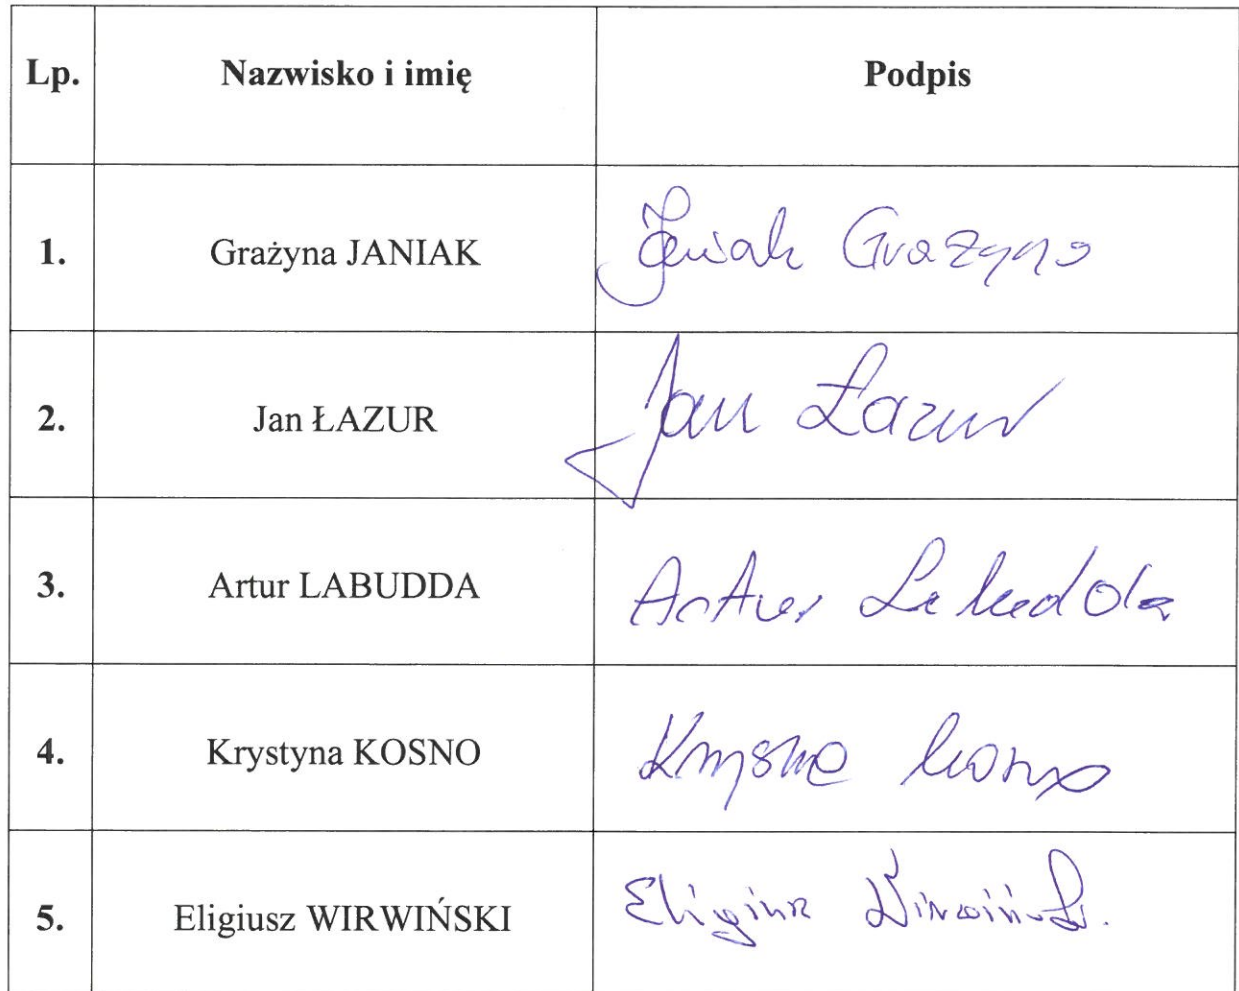 Lp. Nazwisko i imię Podpis
1. Grażyna JANIAK Janiak Grażyna
2. Jan ŁAZUR Jan Łazur
3. Artur LABUDDA Artur Labudda
4. Krystyna KOSNO Krystyna Kosno
5. Eligiusz WIRWIŃSKI Eligiusz Wirwiński